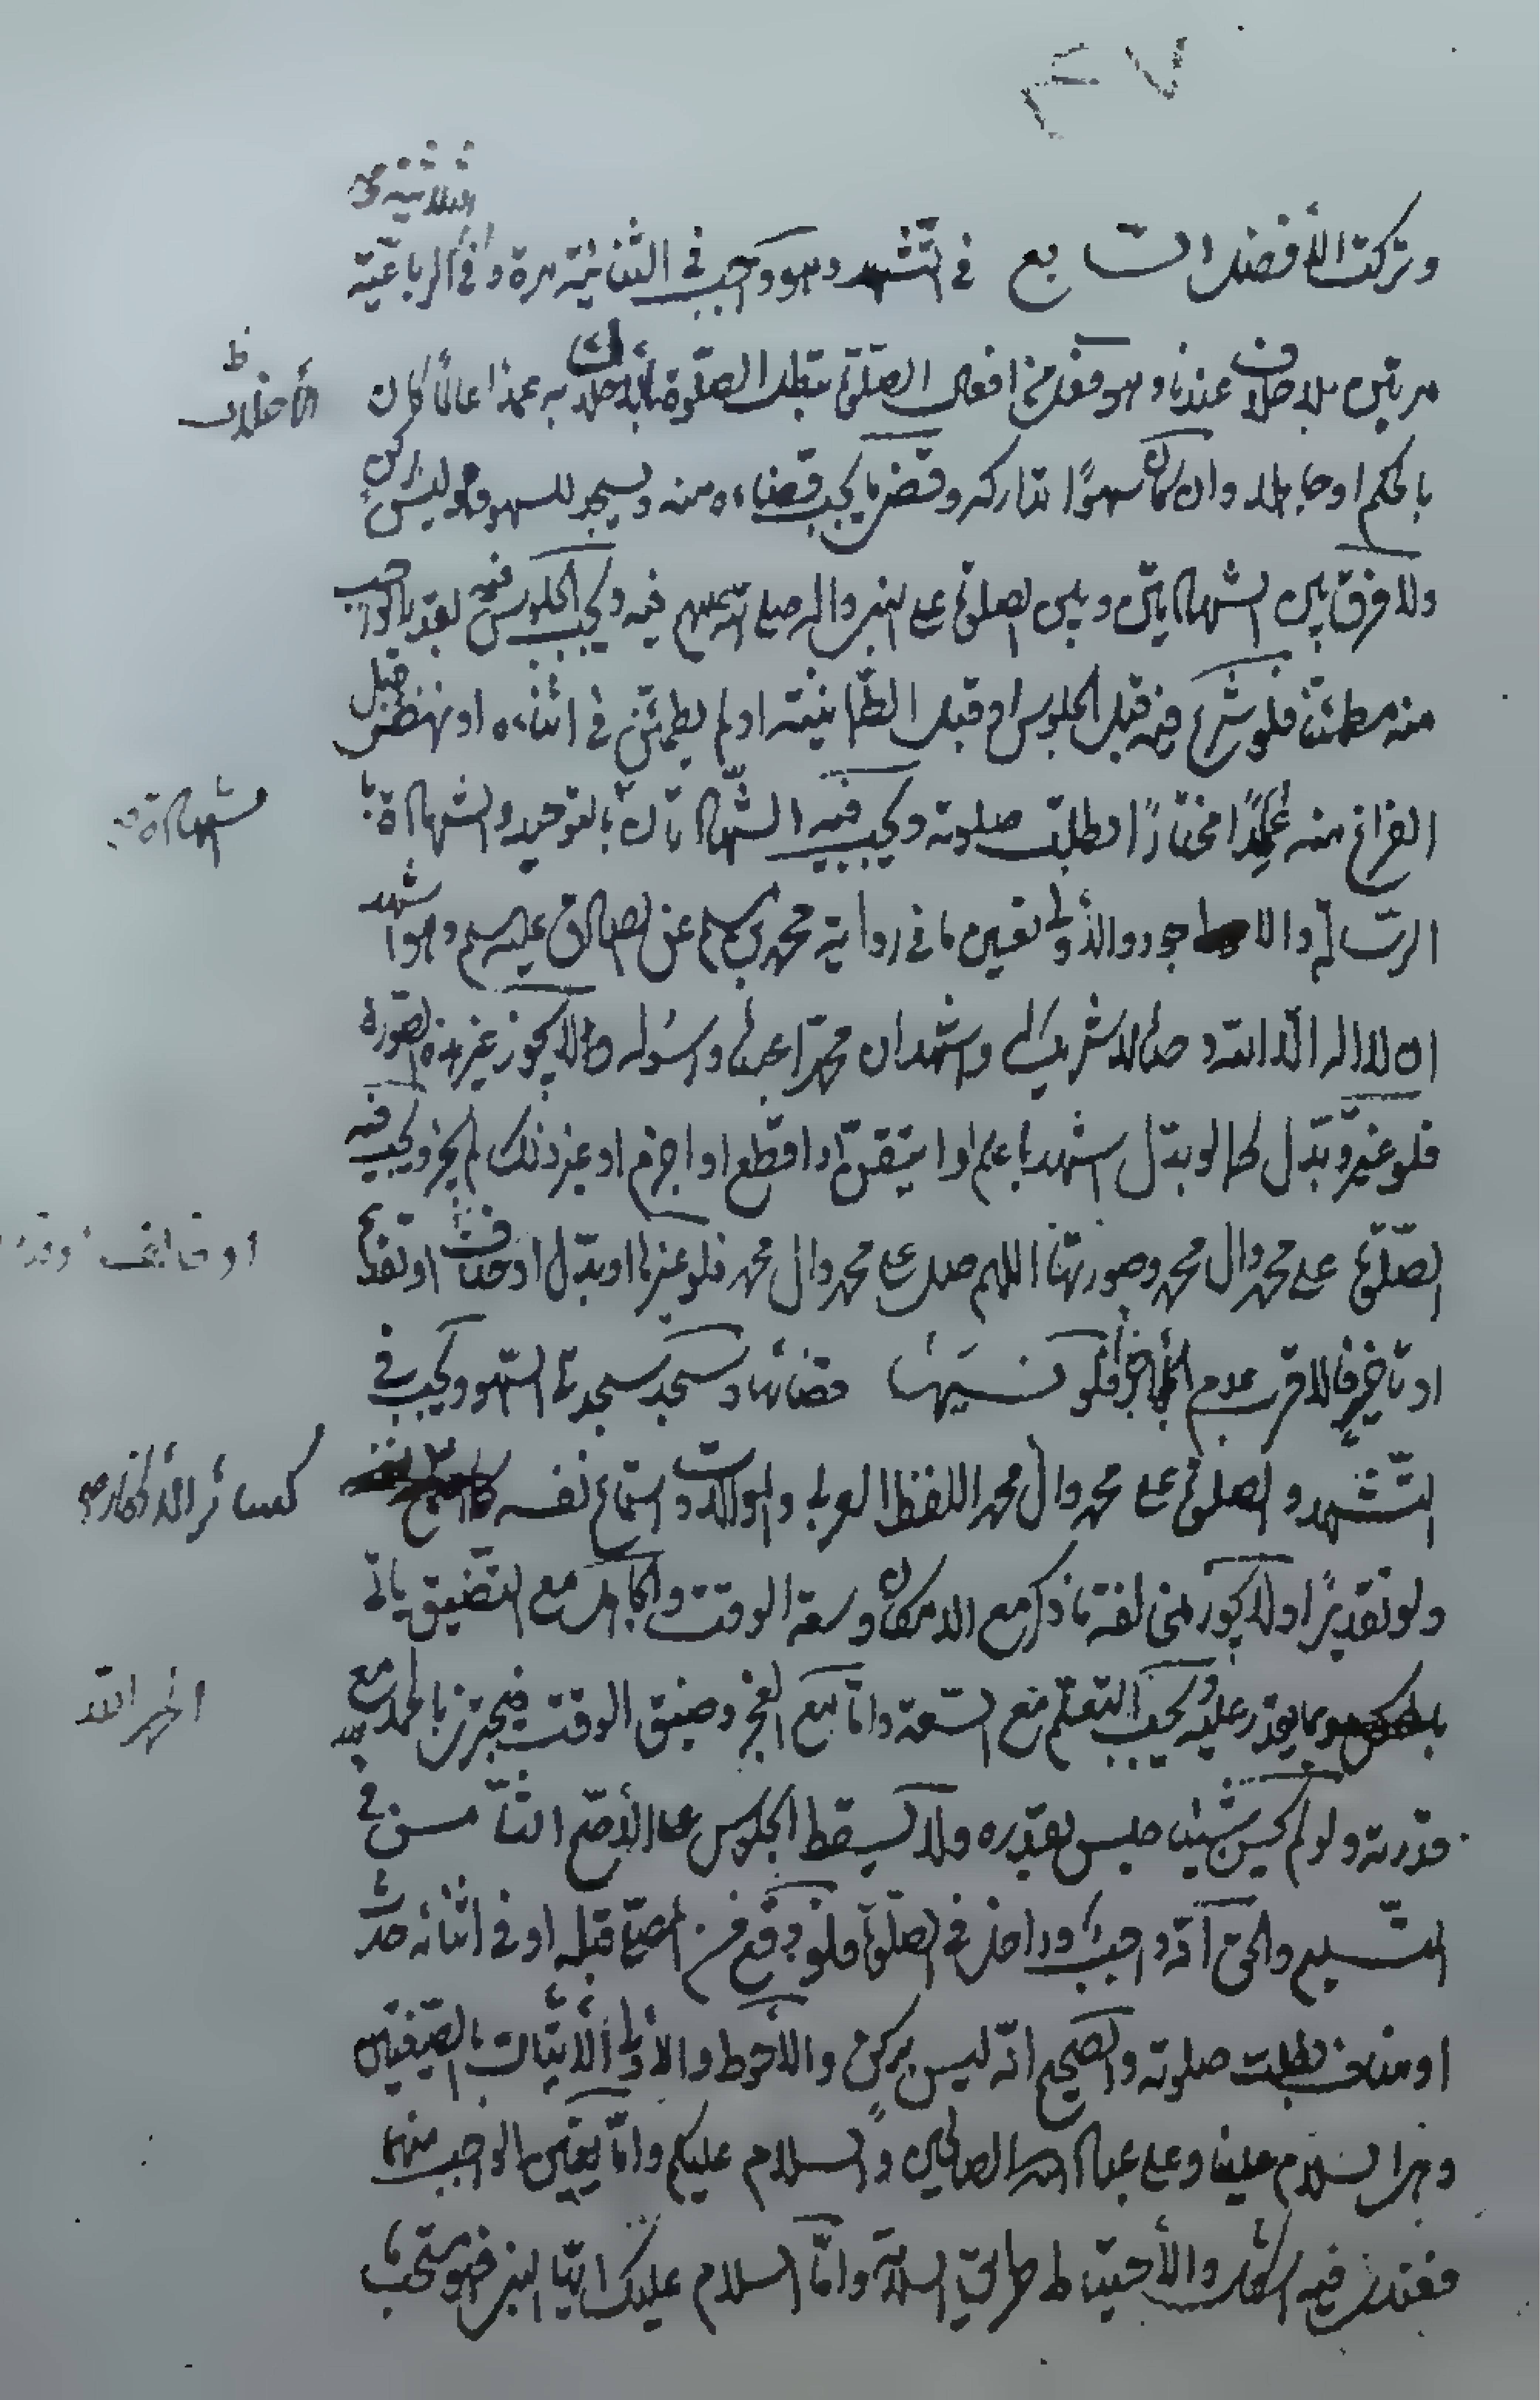 ٢٧
الثلاثية و
وتركت الأفضل السابع في التشهد وهو واجب في الثنائية مرة وفي الرباعية
مرتين بلا خلاف عندنا وهو فعل من افعال الصلوة تبطل الصلوة بالاخلال به عمدا عالما كان
الأخلال
بالحكم او جاهلا وان كان سهوًا تداركه وقضى ما يجب قضاءه منه ويسجد للسهو فهو ليس بركن
ولا فرق بين الشهادتين وبين الصلوة على النبي واله صلى الله عليهم فيه ويجب الجلوس فيه بقدر الواجب
منه مطمئنا فلو شرع فيه قبل الجلوس او قبل الطمانينة او لم يطمئن في اثناءه او نهض قبل
الفراغ منه عمدًا مختارًا بطلت صلوته ويجب فيه الشهادتان بالتوحيد والشهادة با
شهادة
الرسالة والاحوط والأولى تعين ما في رواية محمد بن مسلم عن الصادق عليه السلم وهو اشهد
ان لا اله الا الله وحده لا شريك له واشهد ان محمدا عبده ورسوله ولا يجوز غير هذه الصورة
فلو غير وبدل كما لو بدل اشهد باعلم او اتيقن او اقطع او اجزم او غير ذلك لم يجز ويجب فيه
الصلوة على محمد وال محمد وصورتها اللهم صل على محمد وال محمد فلو غيرها او بدل او حذف او تقديم
او تأخير فالاقرب عدم الاجزاء فلو نسيها قضاها وسجد سجدتي السهو ويجب في
التشهد والصلوة على محمد وال محمد اللفظ العربي والموالات واستماع نفسه
كسائر الأذكار
ولو تقديرًا ولا يجوز مخالفة ما ذكر مع الامكان وسعة الوقت والجاهل مع التضيق ياتي
بما يقدر عليه ويجب التعلم مع السعة واما مع العجز وضيق الوقت فيجتزي بالحمد مع
الحمد لله
قدرته ولو لم يحسن شيئا جلس بقدره ولا يسقط الجلوس على الأصح الثامن في
التسليم والحق انه واجب وداخل في الصلوة فلو وقع من المصلي قبله او في اثنائه حدث
او مناف بطلت صلوته والصحيح انه ليس بركن والاحوط والأولى الأتيان بالصيغتين
وهما السلام علينا وعلى عباد الله الصالحين والسلام عليكم واما تعيين الواجب منهما
فعندي فيه اشكال والأحتياط طريق السلامة واما السلام عليك ايها النبي فهو مستحب